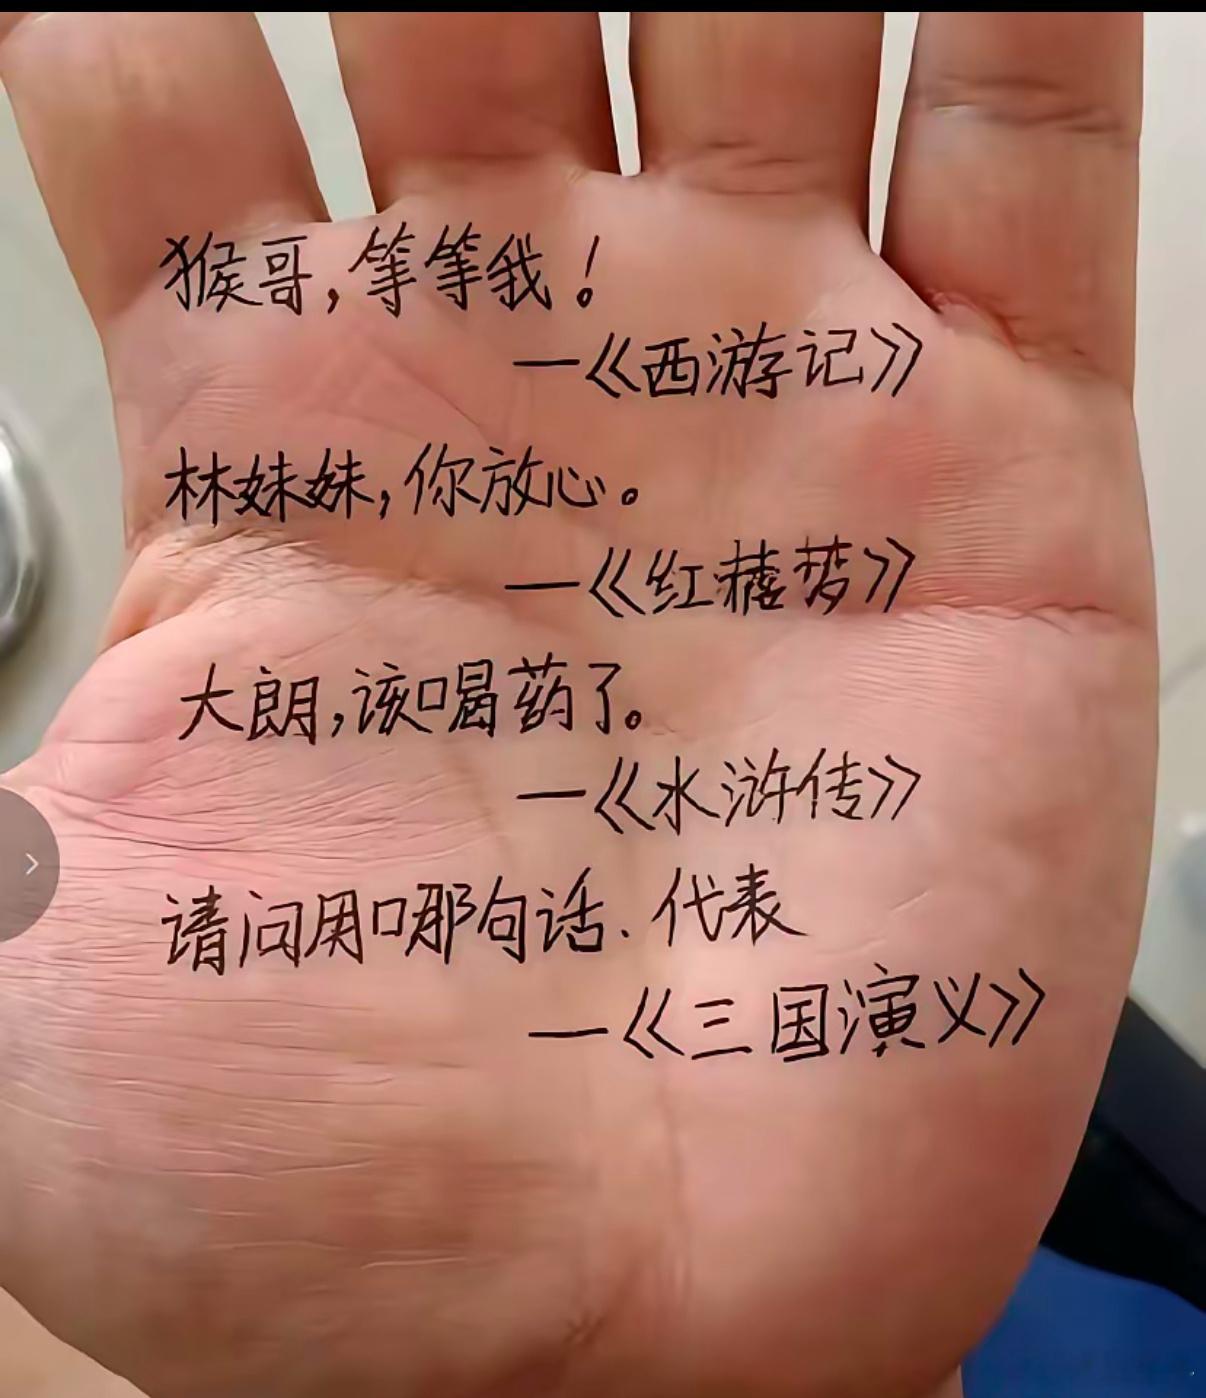 猴哥,等等我!
—《西游记》
林妹妹,你放心。
—《红楼梦》
大朗,该喝药了。
—《水浒传》
请问用哪句话、代表
—《三国演义》